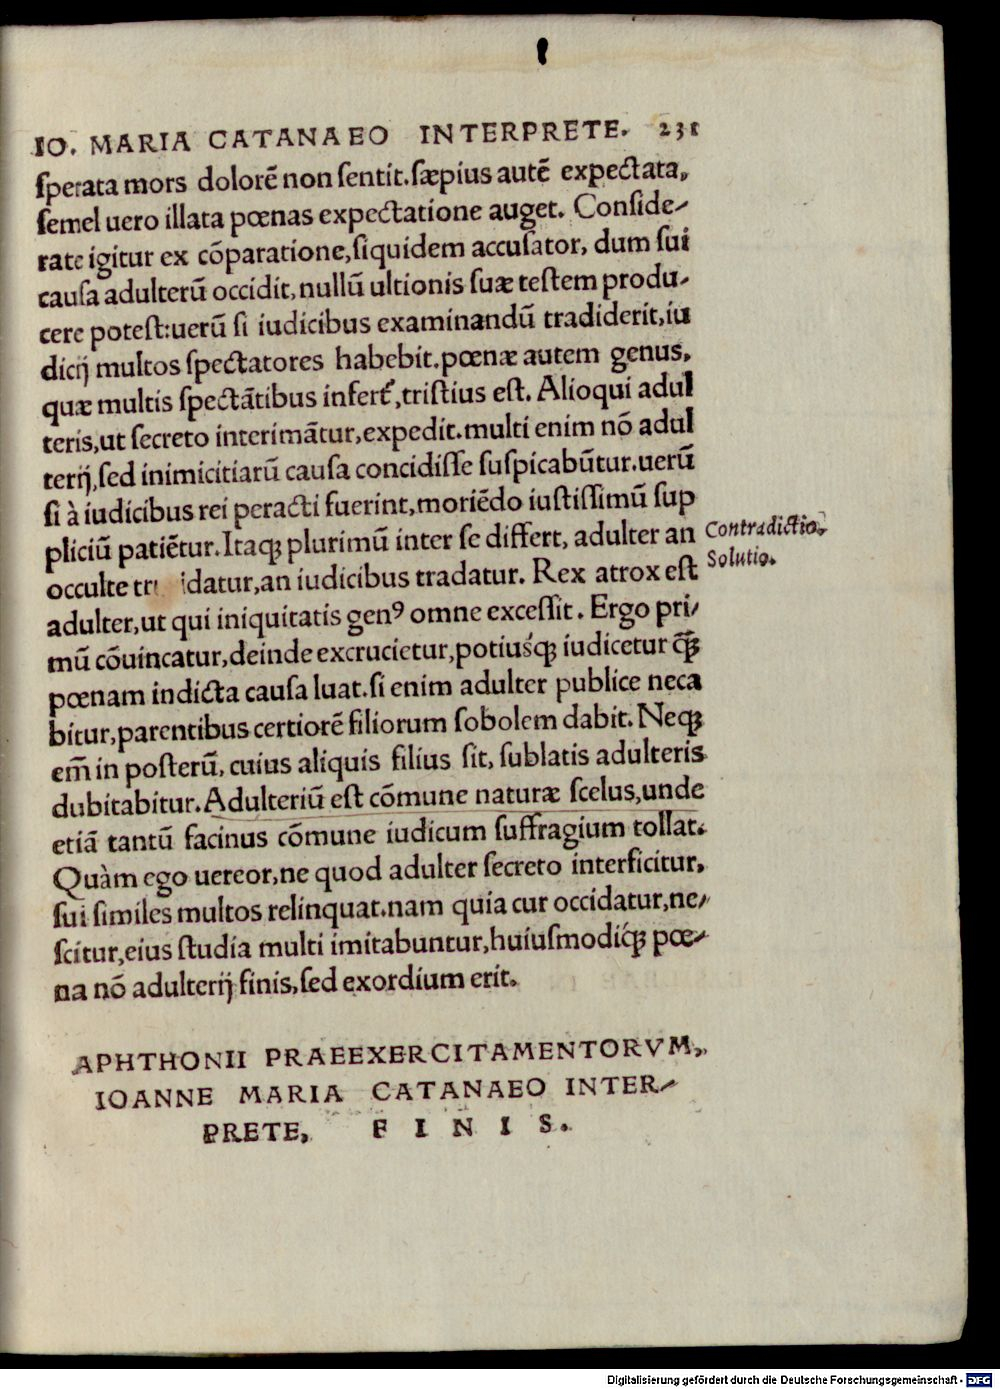 IO. MARIA CATANAEO INTERPRETE. 231
sperata mors dolorē non sentit. sæpius autē expectata,
semel uero illata pœnas expectatione auget. Conside-
rate igitur ex cōparatione, siquidem accusator, dum sui
causa adulterū occidit, nullū ultionis suæ testem produ-
cere potest: uerū si iudicibus examinandū tradiderit, iu
dicij multos spectatores habebit. pœnæ autem genus,
quæ multis spectātibus infert᷒, tristius est. Alioqui adul
teris, ut secreto interimātur, expedit. multi enim nō adul
terij, sed inimicitiarū causa concidisse suspicabūtur. uerū
si à iudicibus rei peracti fuerint, moriēdo iustissimū sup
pliciū patiētur. Itaqꝫ plurimū inter se differt, adulter an
Contradictio.
occulte tr idatur, an iudicibus tradatur. Rex atrox est
Solutio.
adulter, ut qui iniquitatis genꝰ omne excessit. Ergo pri-
mū cōuincatur, deinde excrucietur, potiusq́ꝫ iudicetur q̄ꝫ
pœnam indicta causa luat. si enim adulter publice neca
bitur, parentibus certiorē filiorum sobolem dabit. Neqꝫ
em̄ in posterū, cuius aliquis filius sit, sublatis adulteris
dubitabitur. Adulteriū est cōmune naturæ scelus, unde
etiā tantū facinus cōmune iudicum suffragium tollat.
Quàm ego uereor, ne quod adulter secreto interficitur,
sui similes multos relinquat. nam quia cur occidatur, ne-
scitur, eius studia multi imitabuntur, huiusmodiq́ꝫ pœ-
na nō adulterij finis, sed exordium erit.
APHTHONII PRAEEXERCITAMENTORVM,
IOANNE MARIA CATANAEO INTER-
PRETE, FINIS.
Digitalisierung gefördert durch die Deutsche Forschungsgemeinschaft - DFG